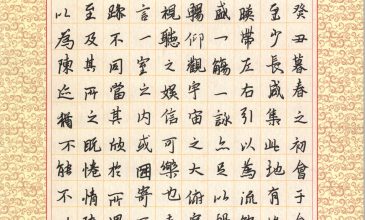 癸丑暮春之初會于
至少長咸集此地有
暎帶左右引以為流
盛一觴一詠亦足以
暢仰觀宇宙之大俯
視聽之娛信可樂也
言一室之內或因寄
跡不同當其欣於所
至及其所之既惓情
以為陳迹猶不能不